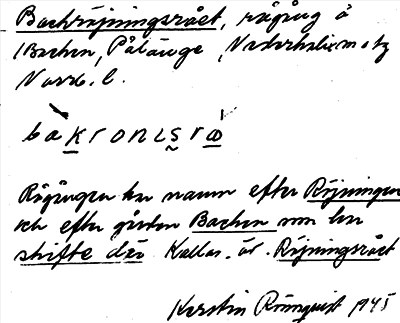 Backröjningsrået, rågång å
Backen, Pålänge, Nederkalix sn o tg
Norrb. l.
bakronısrå
Rågången har namn efter Röjningen
och efter gården Backen som har
skifte där. Kallas äv. Röjningsrået
Kerstin Rönnquist 1945